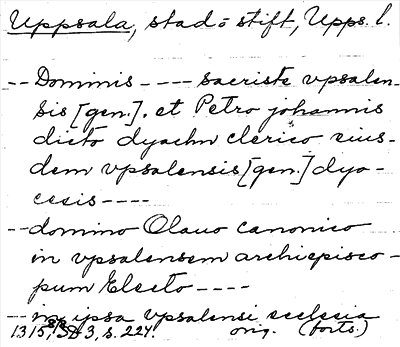 Uppsala, stad o stift, Upps. l.
-- Dominis ---- sacriste vpsalen-
sis [gen.]. et Petro johannis
dicto dyaehn clerico eius-
dem vpsalensis [gen.] dyo-
cesis ----
-- domino Olauo canonico
in vpsalensem archiepisco-
pum Electo ----
-- in ipsa vpsalensi ecclesia
1315 SD 3, s. 224. orig. (forts.)